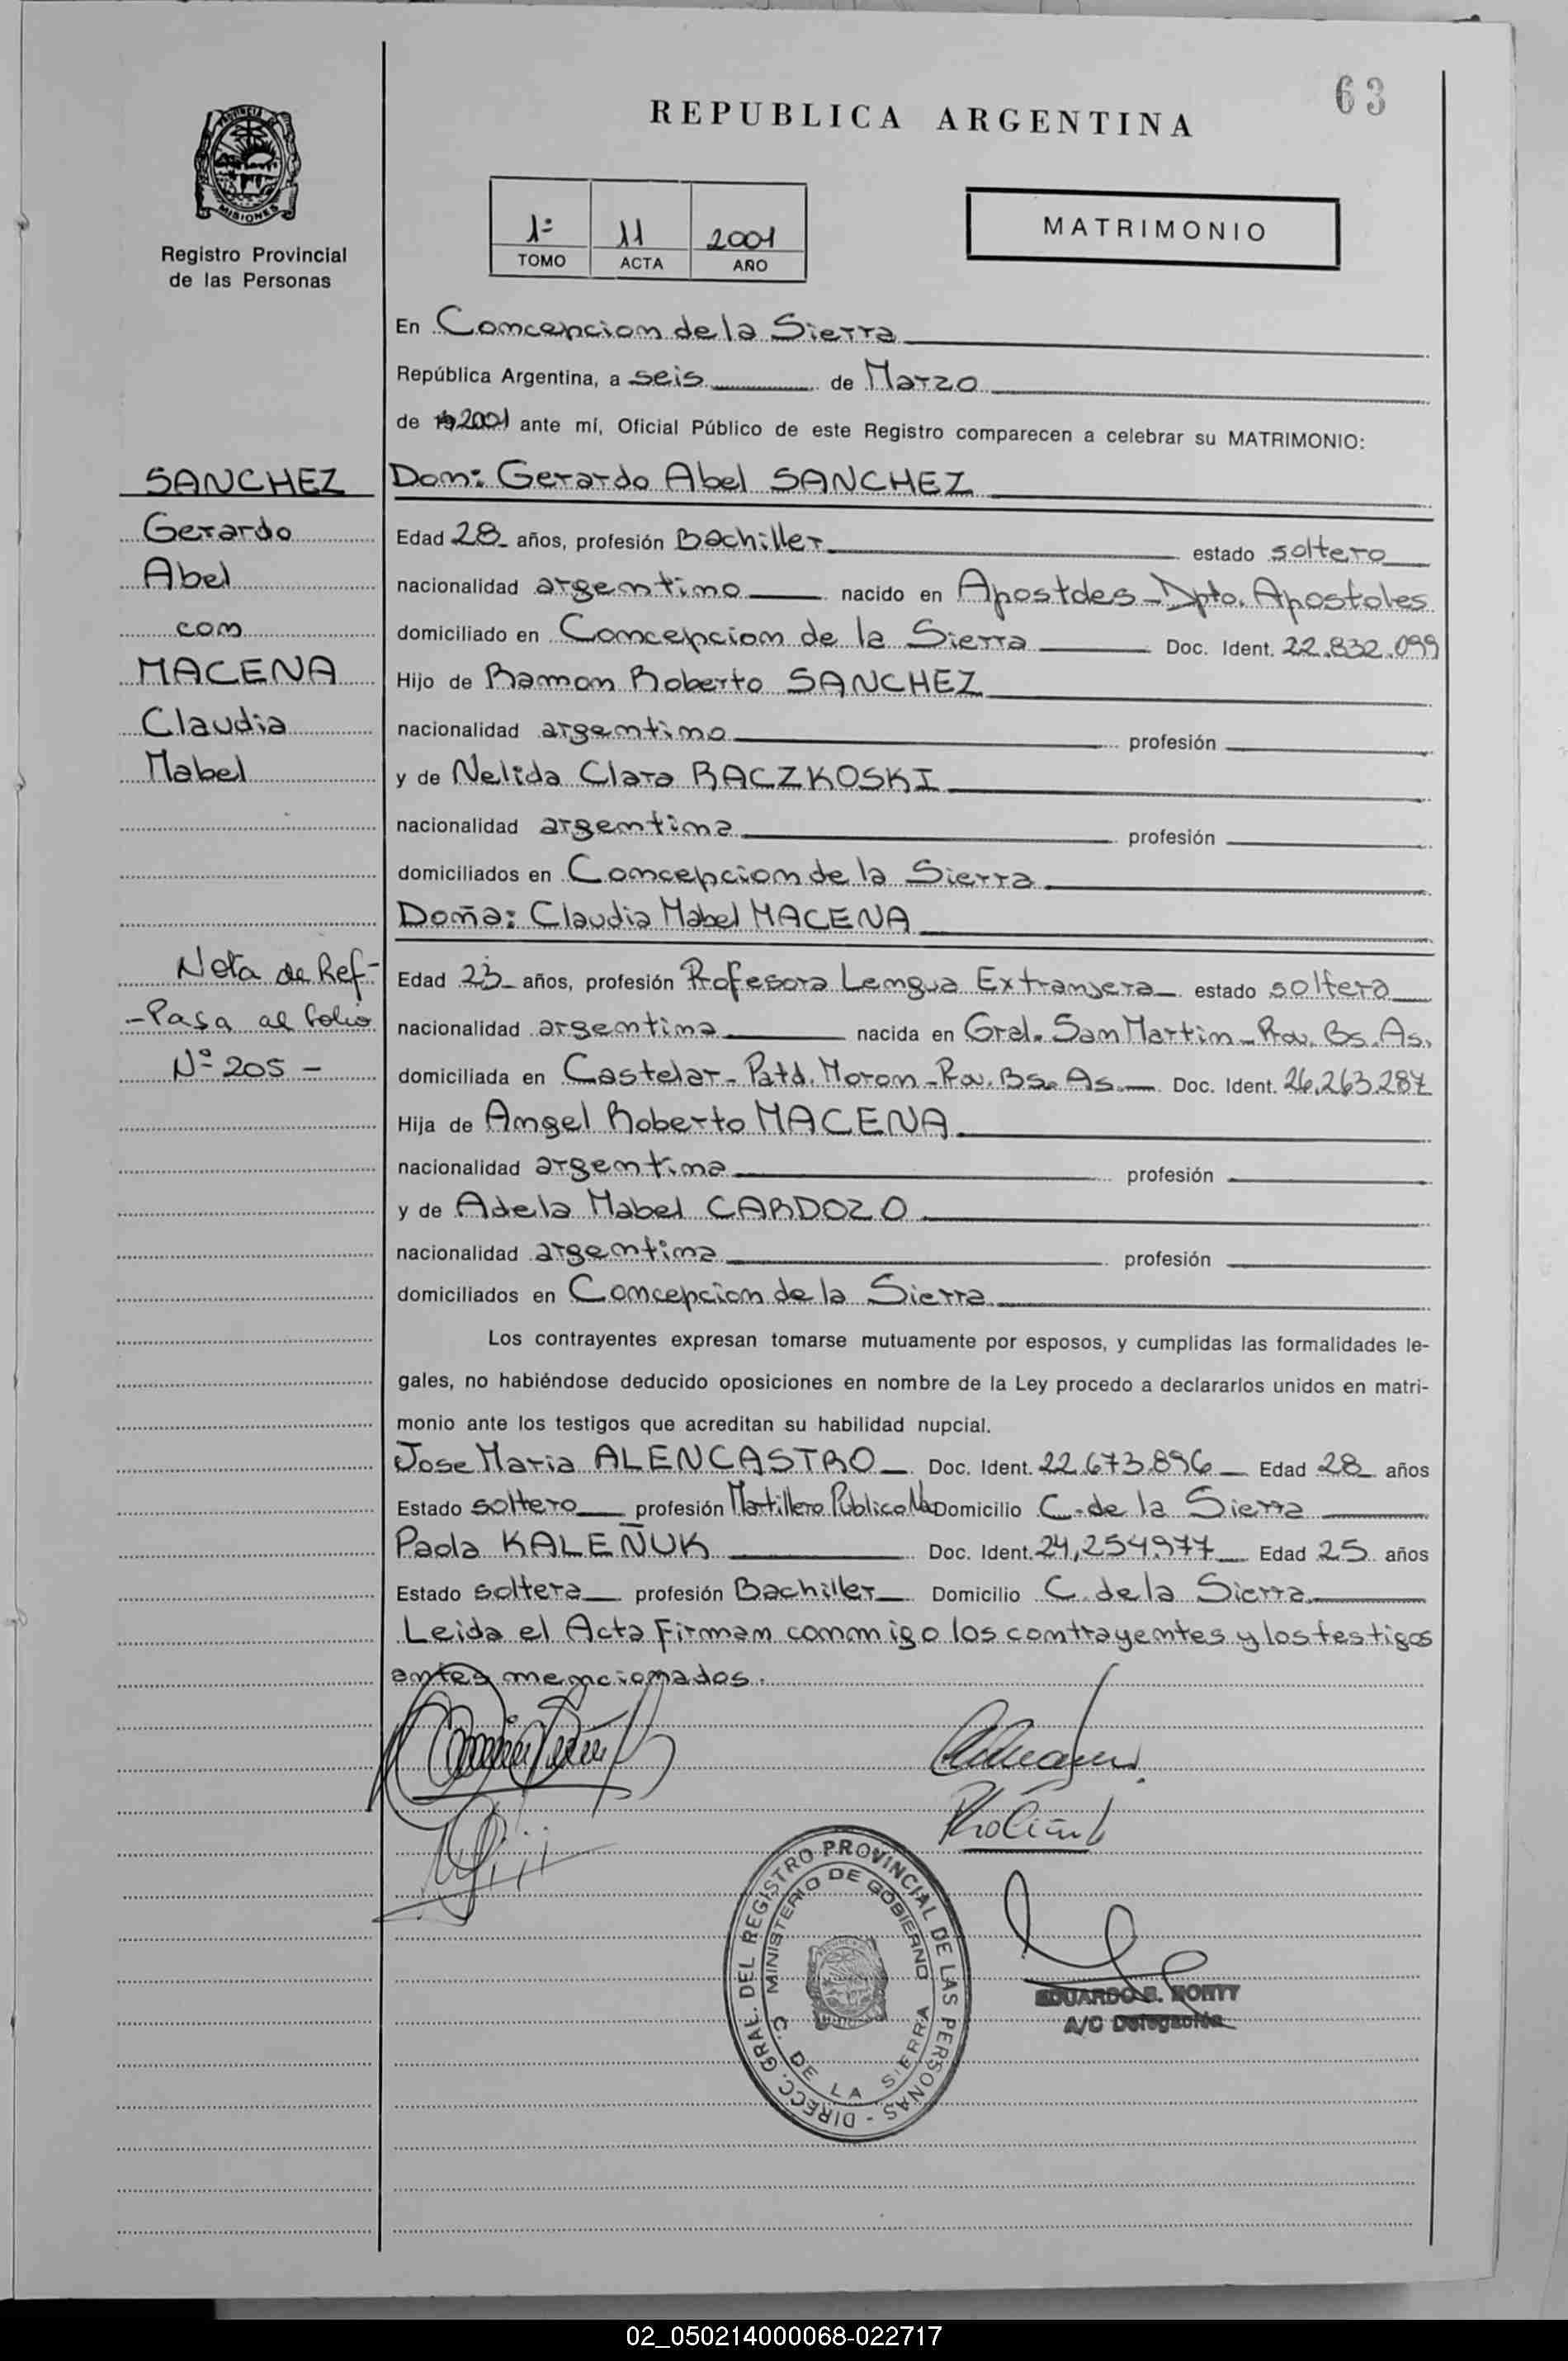 63
REPUBLICA ARGENTINA
PROVINCIA DE
MISIONES
Registro Provincial
de las Personas
1º 11 2001
TOMO ACTA AÑO
MATRIMONIO
En Concepcion de la Sierra
República Argentina, a seis de Marzo
de 19 2001 ante mí, Oficial Público de este Registro comparecen a celebrar su MATRIMONIO:
SANCHEZ
Gerardo
Abel
con
MACENA
Claudia
Mabel
Don: Gerardo Abel SANCHEZ
Edad 28 años, profesión Bachiller estado soltero
nacionalidad argentino nacido en Apostoles - Dpto. Apostoles
domiciliado en Concepcion de la Sierra Doc. Ident. 22.832.099
Hijo de Ramon Roberto SANCHEZ
nacionalidad argentino profesión
y de Nelida Clara RACZKOSKI
nacionalidad argentina profesión
domiciliados en Concepcion de la Sierra
Doña: Claudia Mabel MACENA
Nota de Ref-
-Pasa al folio
Nº 205 -
Edad 23 años, profesión Profesora Lengua Extranjera estado soltera
nacionalidad argentina nacida en Gral. San Martin - Prov. Bs. As.
domiciliada en Castelar - Patd. Moron - Prov. Bs. As. Doc. Ident. 26.263.287
Hija de Angel Roberto MACENA
nacionalidad argentina profesión
y de Adela Mabel CARDOZO
nacionalidad argentina profesión
domiciliados en Concepcion de la Sierra
Los contrayentes expresan tomarse mutuamente por esposos, y cumplidas las formalidades le-
gales, no habiéndose deducido oposiciones en nombre de la Ley procedo a declararlos unidos en matri-
monio ante los testigos que acreditan su habilidad nupcial.
Jose Maria ALENCASTRO Doc. Ident. 22.673.896 Edad 28 años
Estado soltero profesión Martillero Publico Domicilio C. de la Sierra
Paola KALEÑUK Doc. Ident. 24,254.977 Edad 25 años
Estado soltera profesión Bachiller Domicilio C. de la Sierra
Leida el Acta firman conmigo los contrayentes y los testigos
antes mencionados.
DIRECC. GRAL. DEL REGISTRO PROVINCIAL DE LAS PERSONAS -
MINISTERIO DE GOBIERNO
C. DE LA SIERRA
EDUARDO S. MONTY
A/C Delegación
02_050214000068-022717